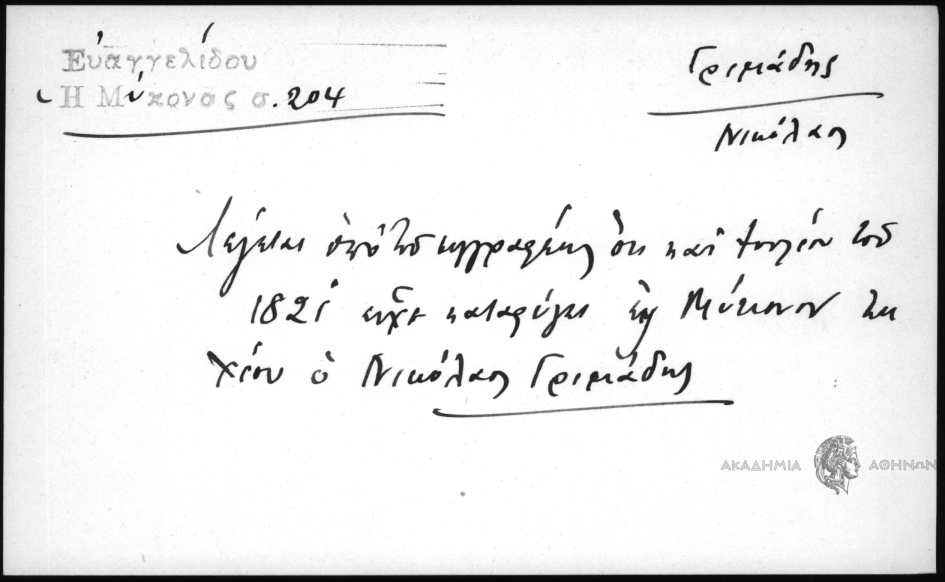 Εὐαγγελίδου
Ἡ Μύκονος σ. 204
Γριμάδης
Νικόλαος
Λέγεται ὑπὸ τοῦ συγγραφέως ὅτι κατ' Ἰούλιον τοῦ
1821 εἶχε καταφύγει εἰς Μύκονον ἐκ
Χίου ὁ Νικόλαος Γριμάδης
ΑΚΑΔΗΜΙΑ ΑΘΗΝΩΝ